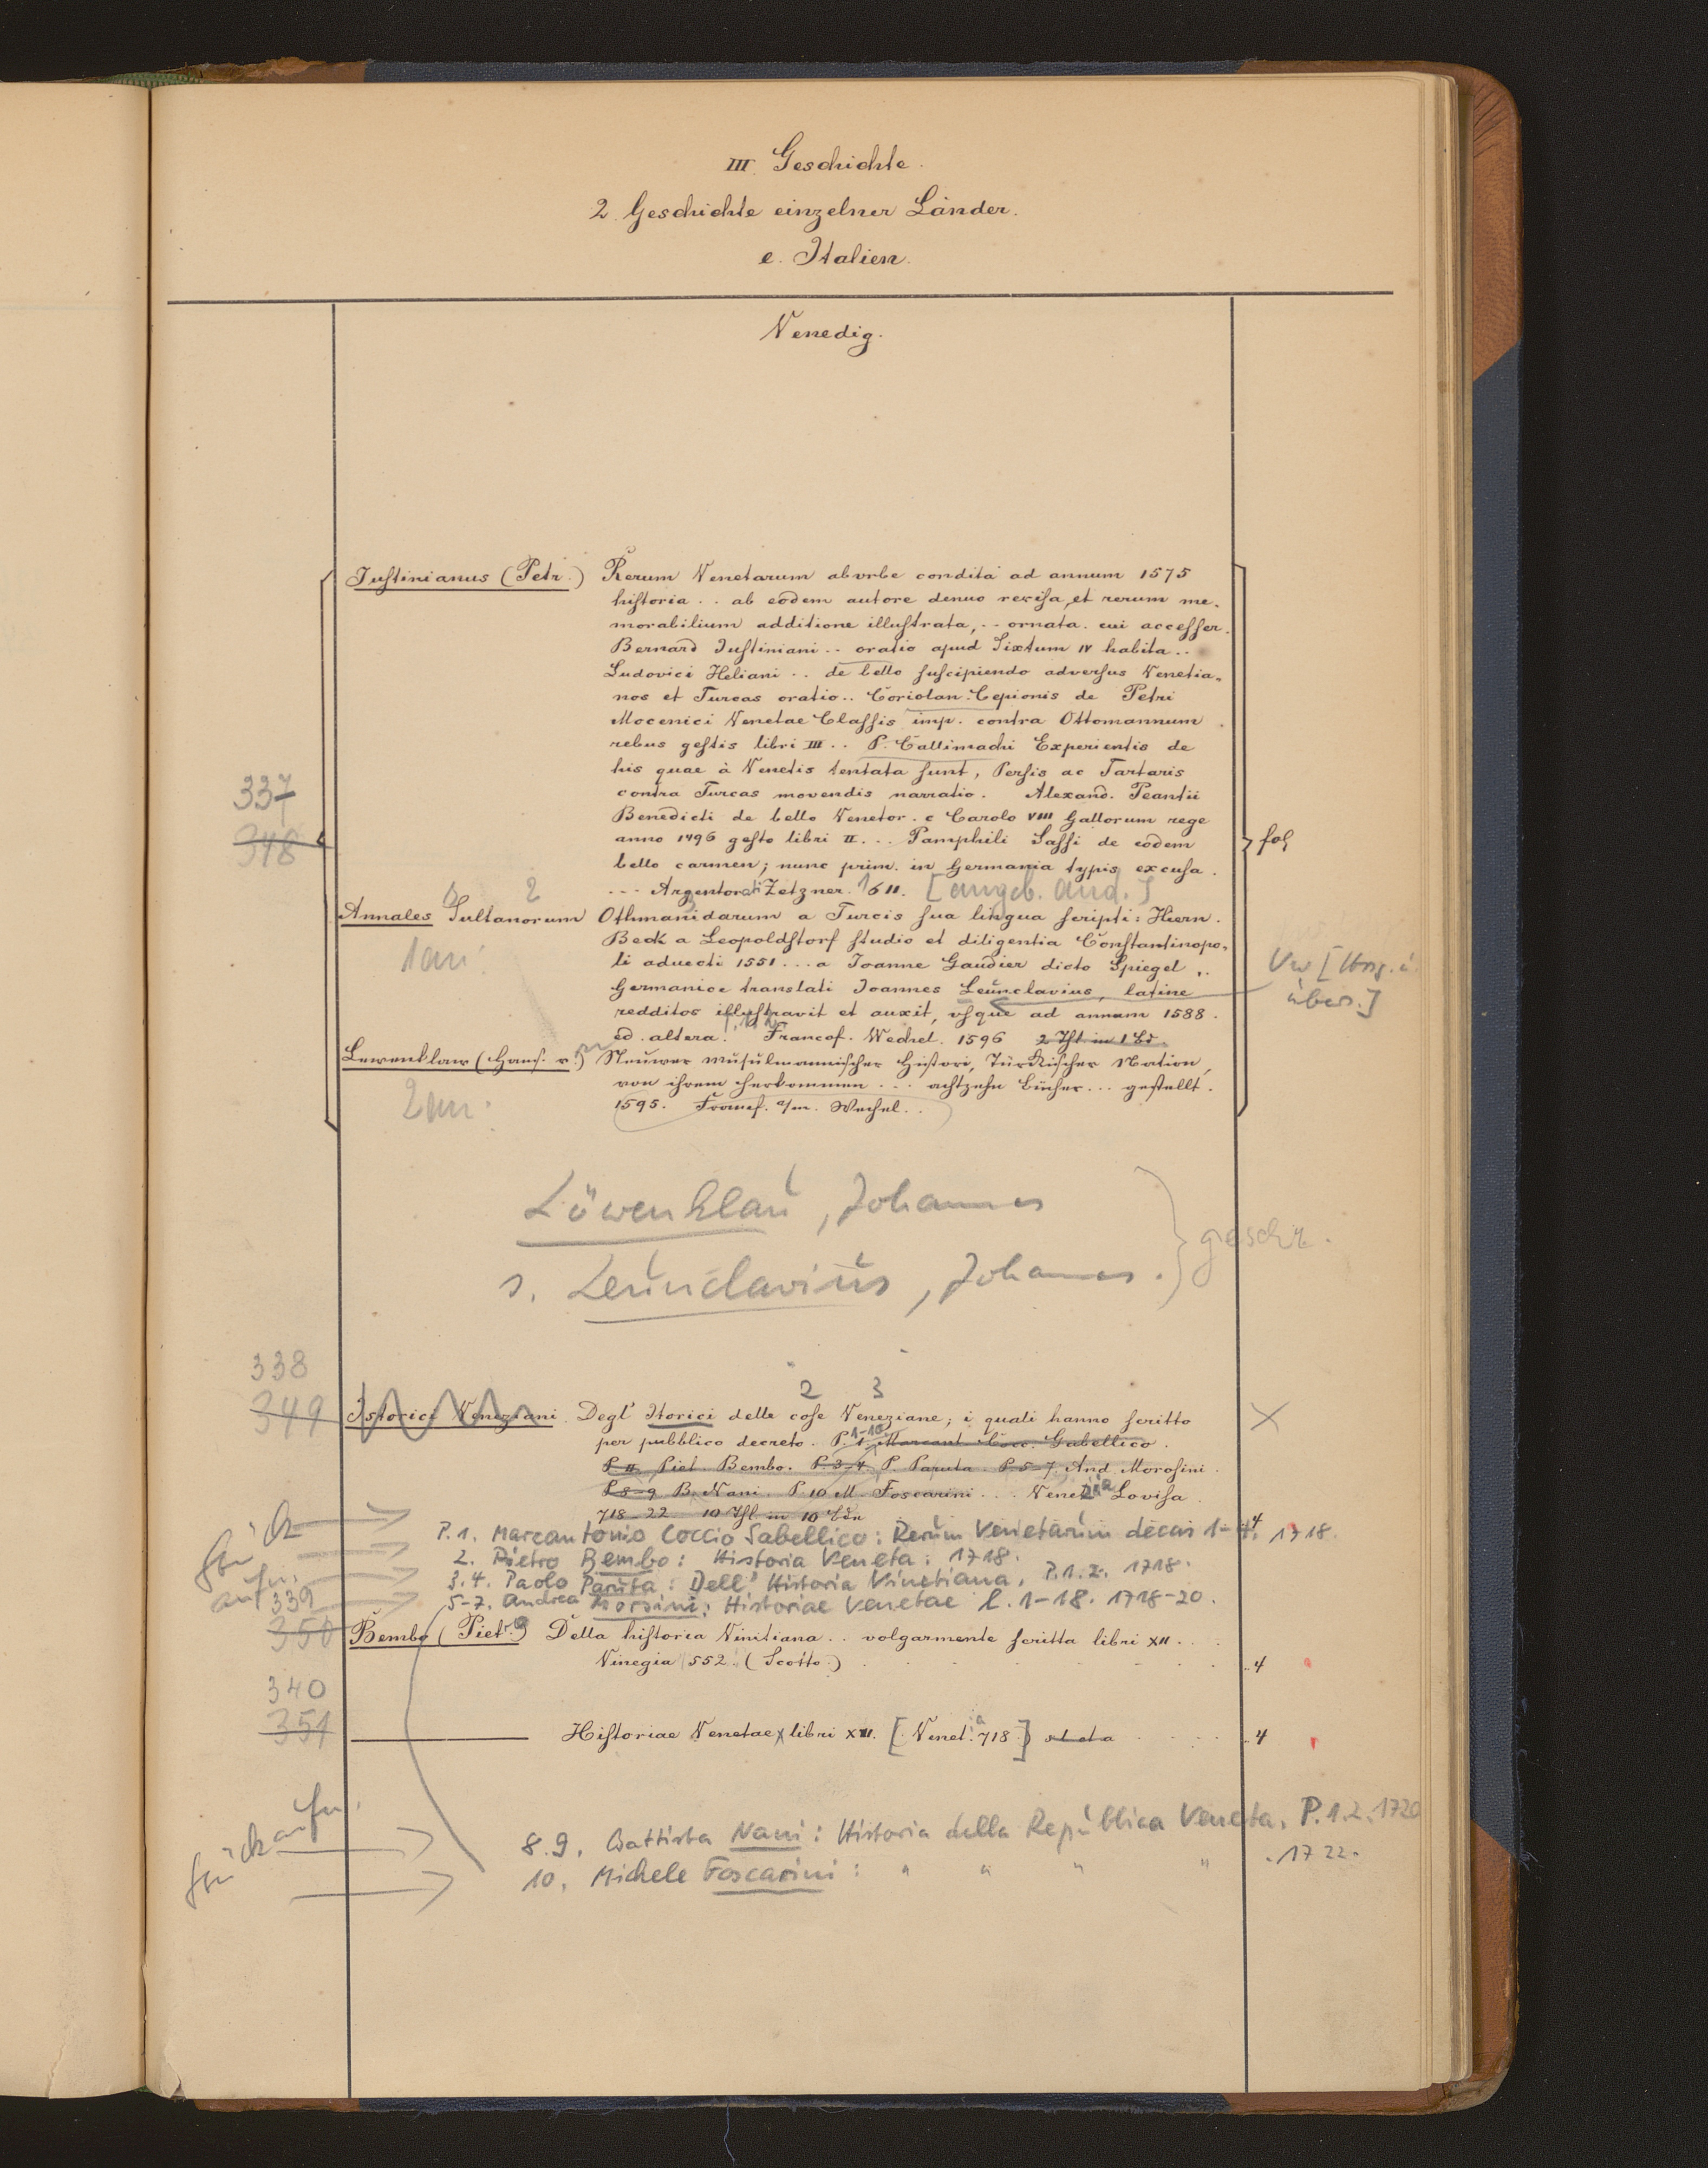 III. Geschichte.
2. Geschichte einzelner Länder.
e. Italien.
Venedig.
Iuſtinianus (Petr.) Rerum Venetarum ab vrbe condita ad annum 1575
hiſtoria .. ab eodem autore denuo reviſa, et rerum me-
morabilium additione illuſtrata, .. ornata. cui acceſſer.
Bernard Iuſtiniani .. oratio apud Sixtum IV habita ..
Ludovici Heliani .. de bello ſuſcipiendo adverſus Venetia-
nos et Turcas oratio .. Coriolan. Cepionis de Petri
Mocenici Venetae Claſſis imp. contra Ottomannum
rebus geſtis libri III .. P. Callimachi Experientis de
his quae à Venetis tentata ſunt, Perſis ac Tartaris
337
contra Turcas movendis narratio. Alexand. Peantii
Benedicti de bello Venetor. c Carolo VIII Gallorum rege
348
anno 1496 geſto libri II. .. Pamphili Saſſi de eodem
fol
bello carmen; nunc prim. in Germania typis excuſa.
... Argentorati Zetzner. 1611. [angeb. an d.]
2 3
Annales Sultanorum Othmanidarum a Turcis ſua lingua ſcripti: Hiern.
Beck a Leopoldſtorf ſtudio et diligentia Conſtantinopo-
1 an:
li aduecti 1551 ... a Ioanne Gaudier dicto Spiegel,
Vw [Hrsg. u.
Germanice translati Ioannes Leunclavius, latine
übers.]
redditos illuſtravit et auxit, vſque ad annum 1588.
ed. altera. Francof. Wechel. 1596 2 Thl in 1 Bd.
Lewenklaw (Hans. v.) Neuwer muſulmanniſcher Hiſtori, Türkiſcher Nation,
von ihrem Herkommen ... achtzehn Bücher ... geſtellt.
2 an:
1595. Francf. a/m. Wechel. .
Löwenklau, Johannes
s. Leunclavius, Johannes.
geschr.
338
2 3
349
Istorici Veneziani. Degl' Istorici delle coſe Veneziane; i quali hanno ſcritto
per pubblico decreto. P. 1 1-10 Marcant. Cocc. Sabellico.
P II Piet. Bembo. P. 3-4. P. Paruta. P. 5-7. And. Moroſini.
P 8-9 B. Nani. P. 10 M. Foscarini ... Venezia Loviſa
718-22 10 Thl in 10 Bdn
4
P. 1. Marcantonio Coccio Sabellico: Rerum Venetarum decas 1-4. 1718.
2. Pietro Bembo: Historia Veneta. 1718.
3.4. Paolo Paruta: Dell' Historia Vinetiana, P. 1.2. 1718.
5-7. Andrea Morosini: Historiae Venetae l. 1-18. 1718-20.
339
350
Bembo (Pietro) Della hiſtoria Vinitiana .. volgarmente ſcritta libri XII ...
Vinegia 552. (Scotto.) 4
340
351
——— Hiſtoriae Venetae libri XII. [Venetia 718] 4
Stück aufn.
8.9. Battista Nani: Historia della Repubblica Veneta. P. 1.2. 1720
10. Michele Foscarini: " " " " . 1722.